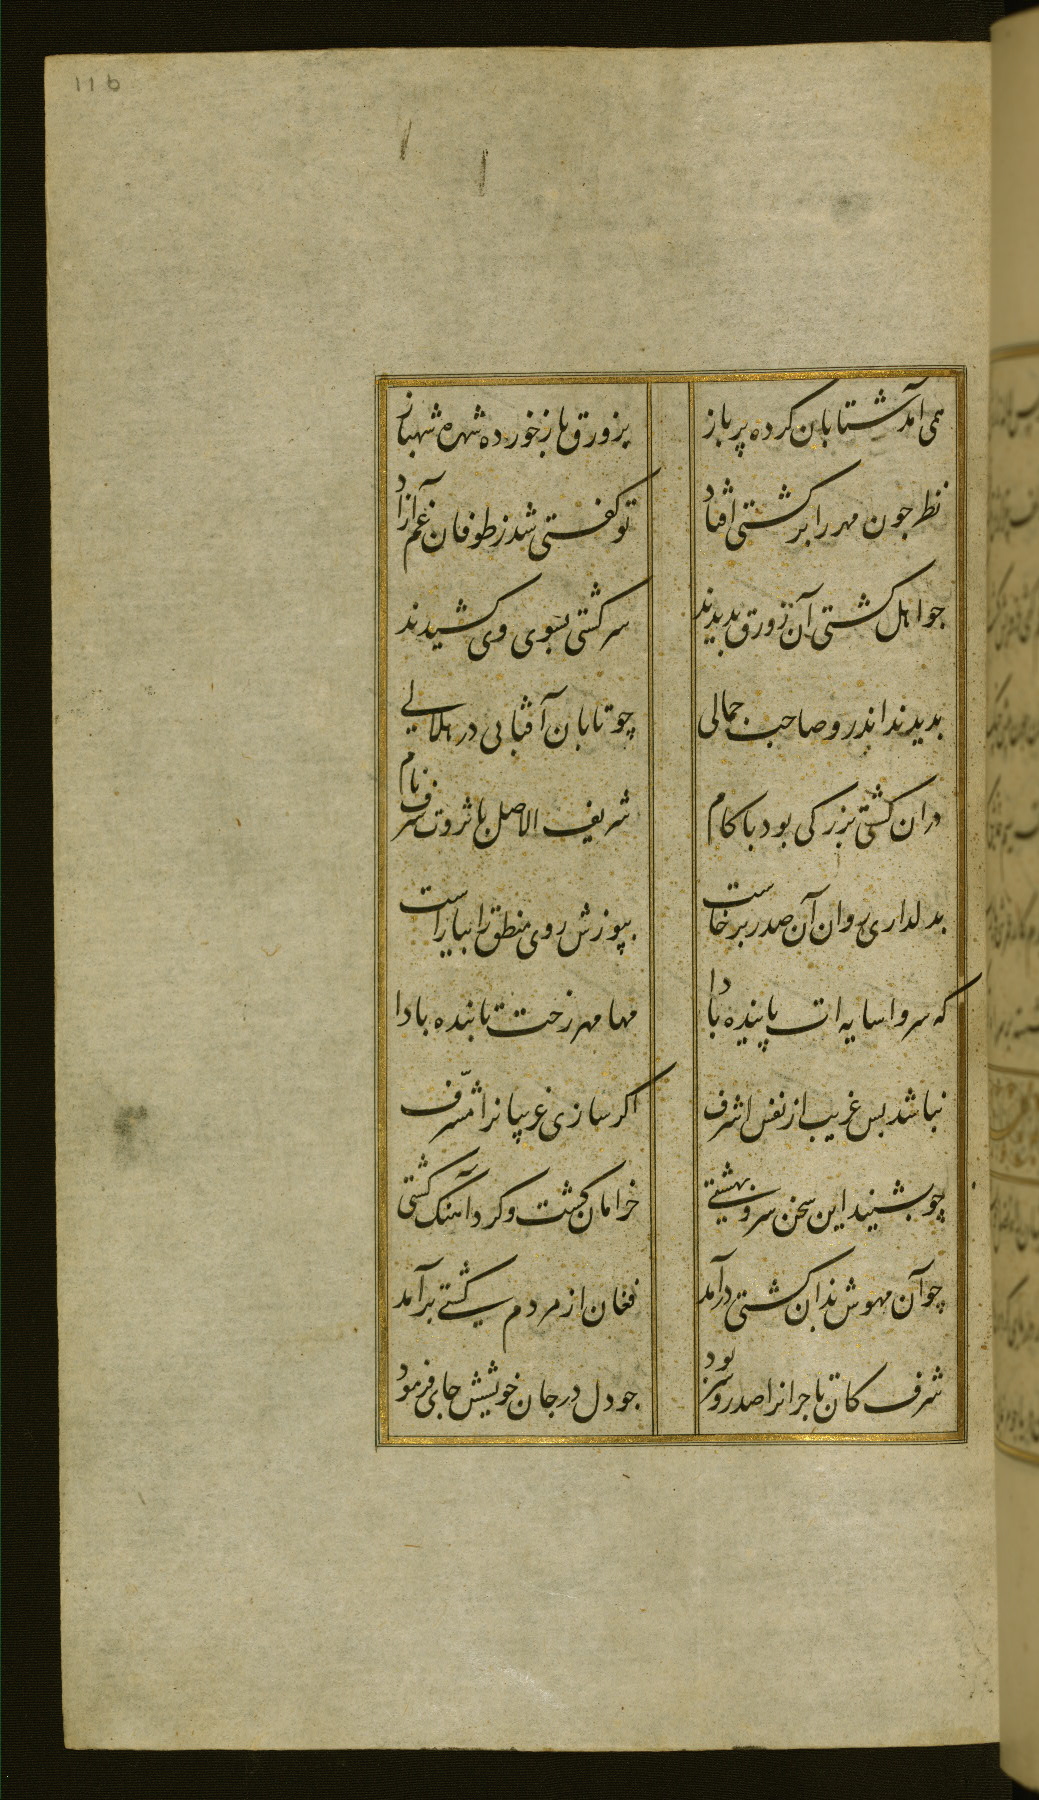 116
همی آمد شتابان کرده پر باز
بزورق باز خورده شهره شهباز
نظر چون مهر را بر کشتی افتاد
تو کفتی شد ز طوفان غم آزاد
چو اهل کشتی آن زورق بدیدند
سر کشتی بسوی وی کشیدند
بدیدند اندر و صاحب جمالی
چو تابان آفتابی در هلالی
دران کشتی بزرکی بود با کام
شریف الاصل با ثروت شرف نام
بدلداری روان آن صدر برخاست
بپوزش روی منطق را بیاراست
که سروا سایه ات پاینده بادا
مها مهر رخت تابنده بادا
نباشد بس غریب از نفس اشرف
اکر سازی غریبانرا مشرف
چو بشنید این سخن سرو بهشتی
خرامان کشت و کرد آهنک کشتی
چو آن مهوش بدان کشتی درآمد
فغان از مردم کشتی برآمد
شرف کان تاجرانرا صدر و سر بود
چو دل در جان خویشش جای فرمود